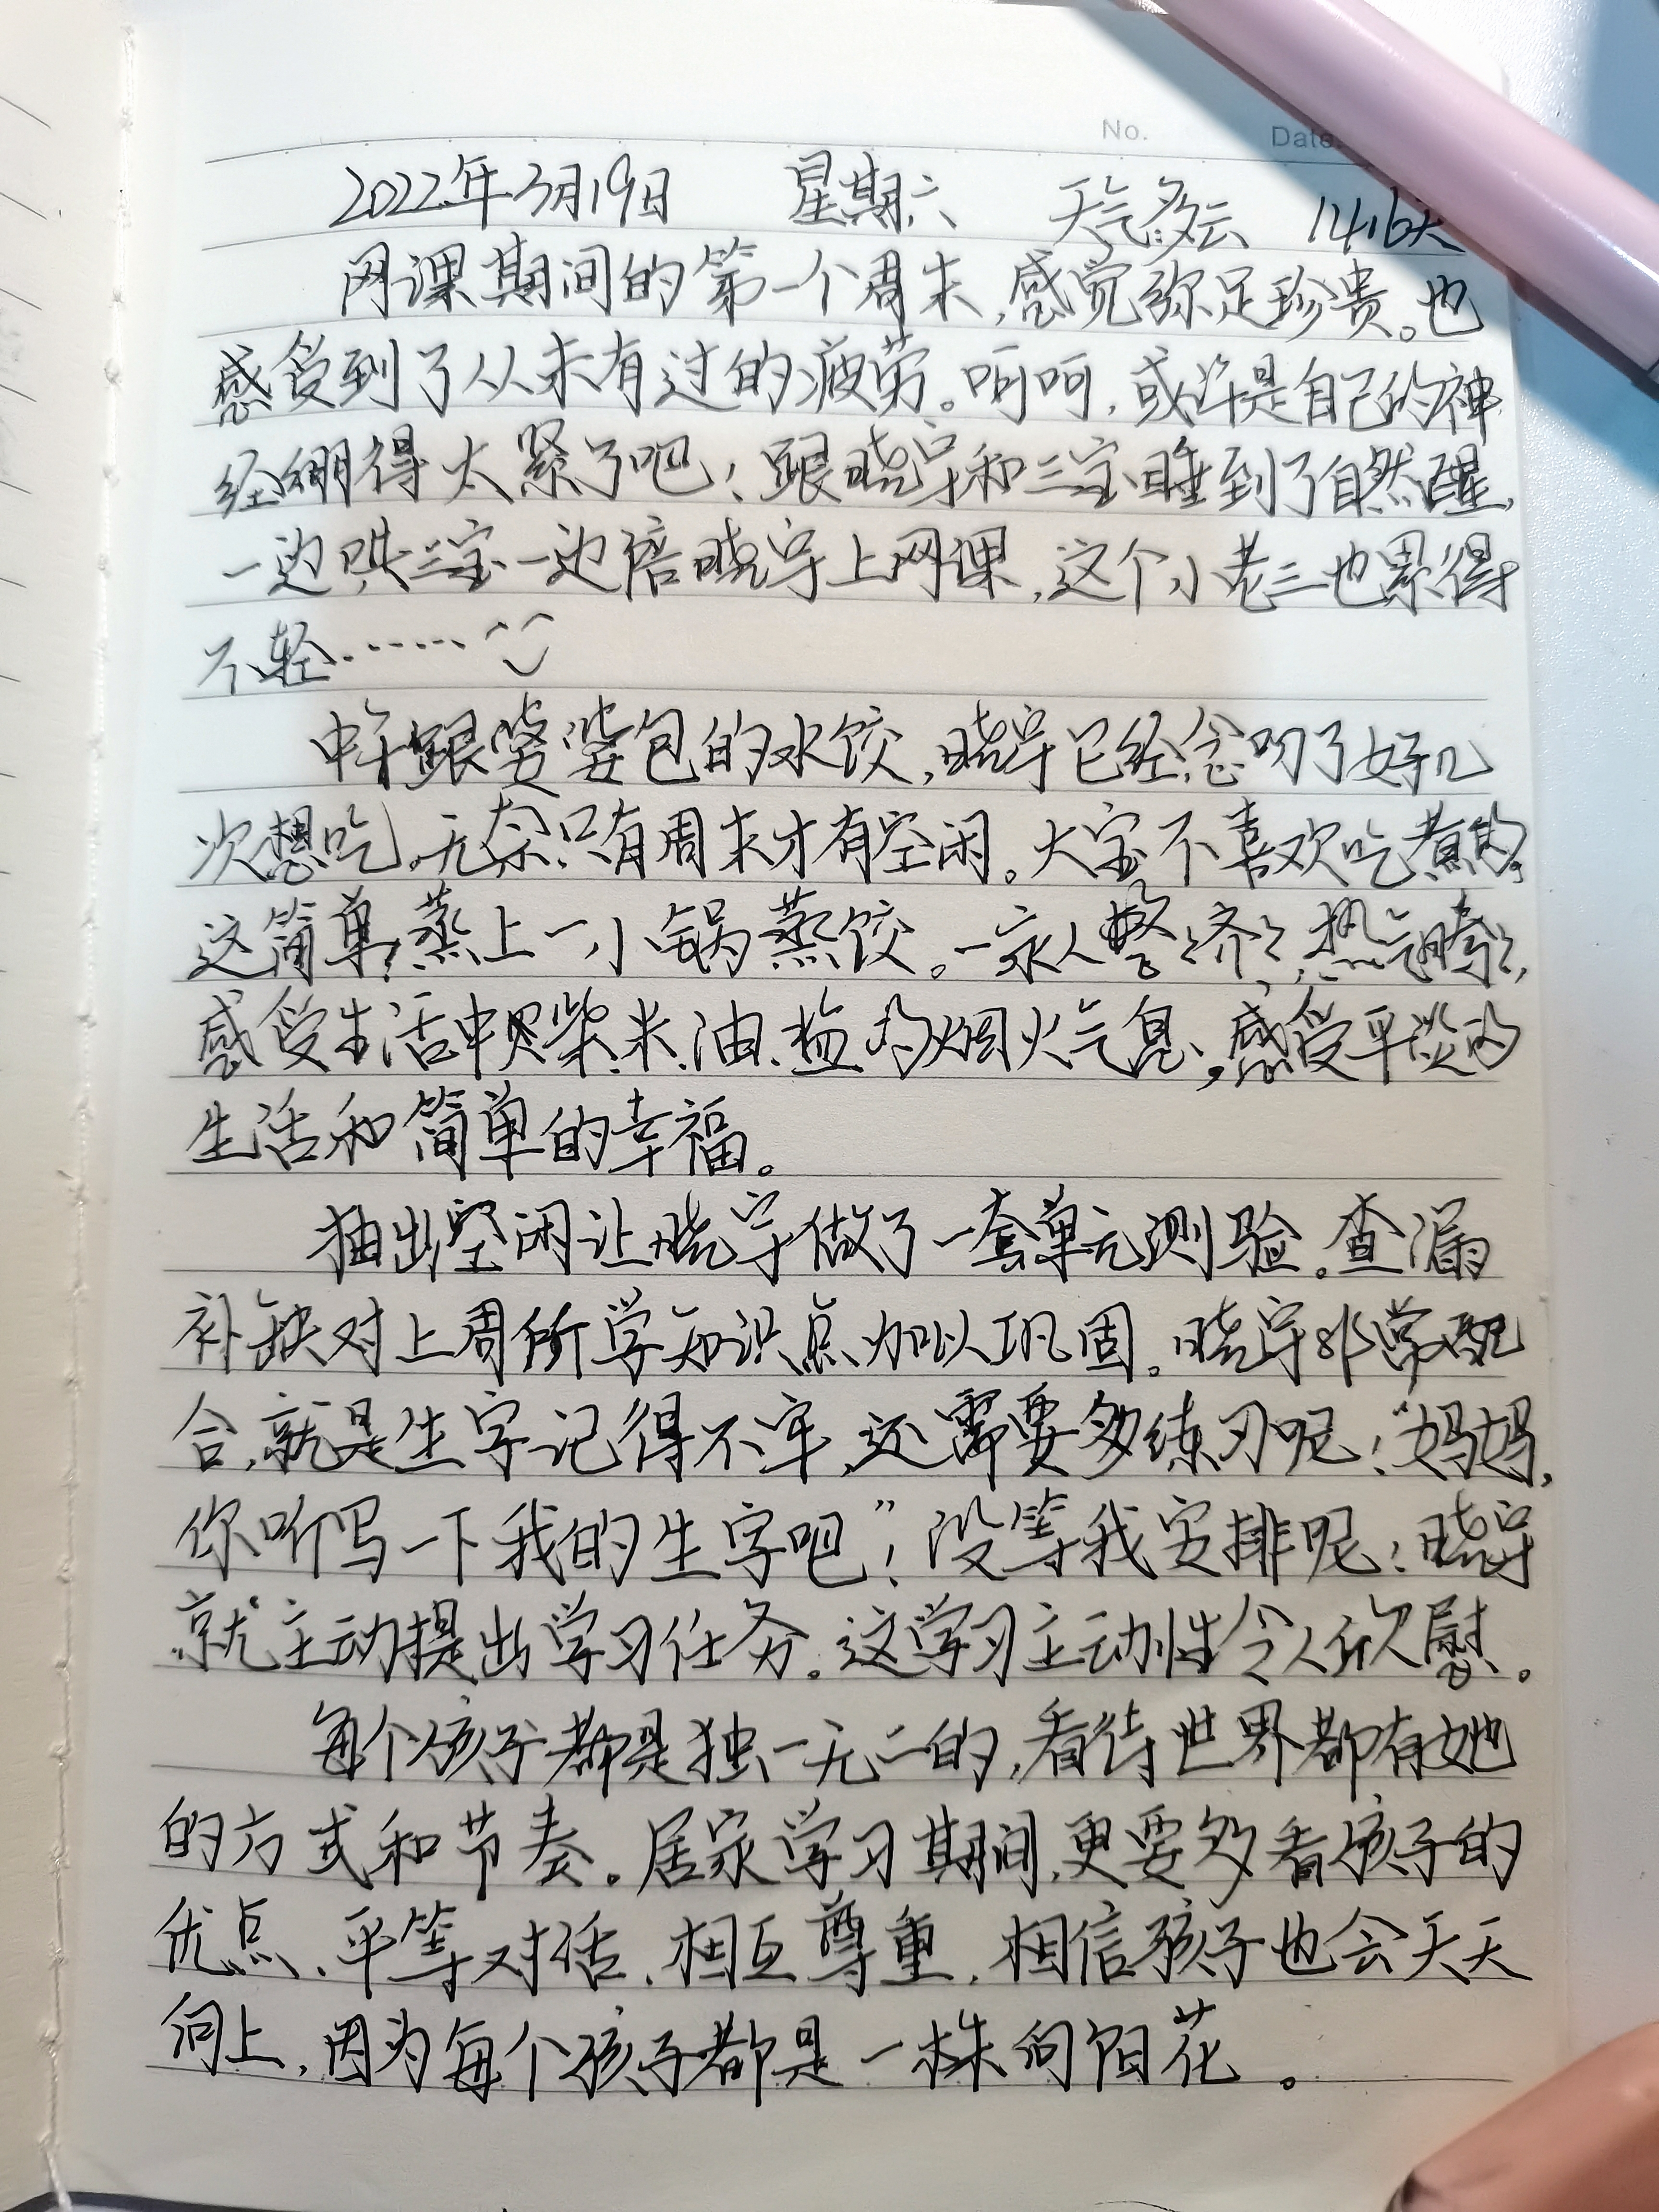 No. Date.
2022年3月19日 星期六 天气多云 1416天
网课期间的第一个周末,感觉弥足珍贵。也
感受到了从未有过的疲劳。呵呵,或许是自己的神
经绷得太紧了吧!跟晓宇和三宝睡到了自然醒,
一边哄三宝一边陪晓宇上网课,这个小老三也累得
不轻……
中午跟婆婆包的水饺,晓宇已经念叨了好几
次想吃,无奈只有周末才有空闲。大宝不喜欢吃煮的,
这简单,蒸上一小锅蒸饺。一家人整整齐齐,热气腾腾,
感受生活中柴、米、油、盐的烟火气息,感受平淡的
生活和简单的幸福。
抽出空闲让晓宇做了一套单元测验。查漏
补缺对上周所学知识点加以巩固。晓宇非常配
合,就是生字记得不牢,还需要多练习呢!“妈妈,
你听写一下我的生字吧”!没等我安排呢!晓宇
就主动提出学习任务。这学习主动性令人欣慰。
每个孩子都是独一无二的,看待世界都有她
的方式和节奏。居家学习期间,更要多看孩子的
优点、平等对话,相互尊重,相信孩子也会天天
向上,因为每个孩子都是一株向阳花。